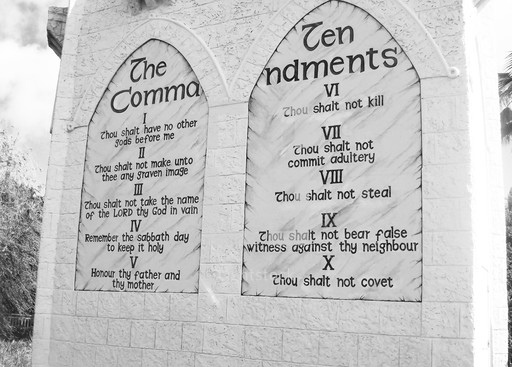 The
Comma
I
Thou shalt have no other
gods before me
II
Thou shalt not make unto
thee any graven image
III
Thou shalt not take the name
of the LORD thy God in vain
IV
Remember the sabbath day
to keep it holy
V
Honour thy father and
thy mother
Ten
ndments
VI
Thou shalt not kill
VII
Thou shalt not
commit adultery
VIII
Thou shalt not steal
IX
Thou shalt not bear false
witness against thy neighbour
X
Thou shalt not covet